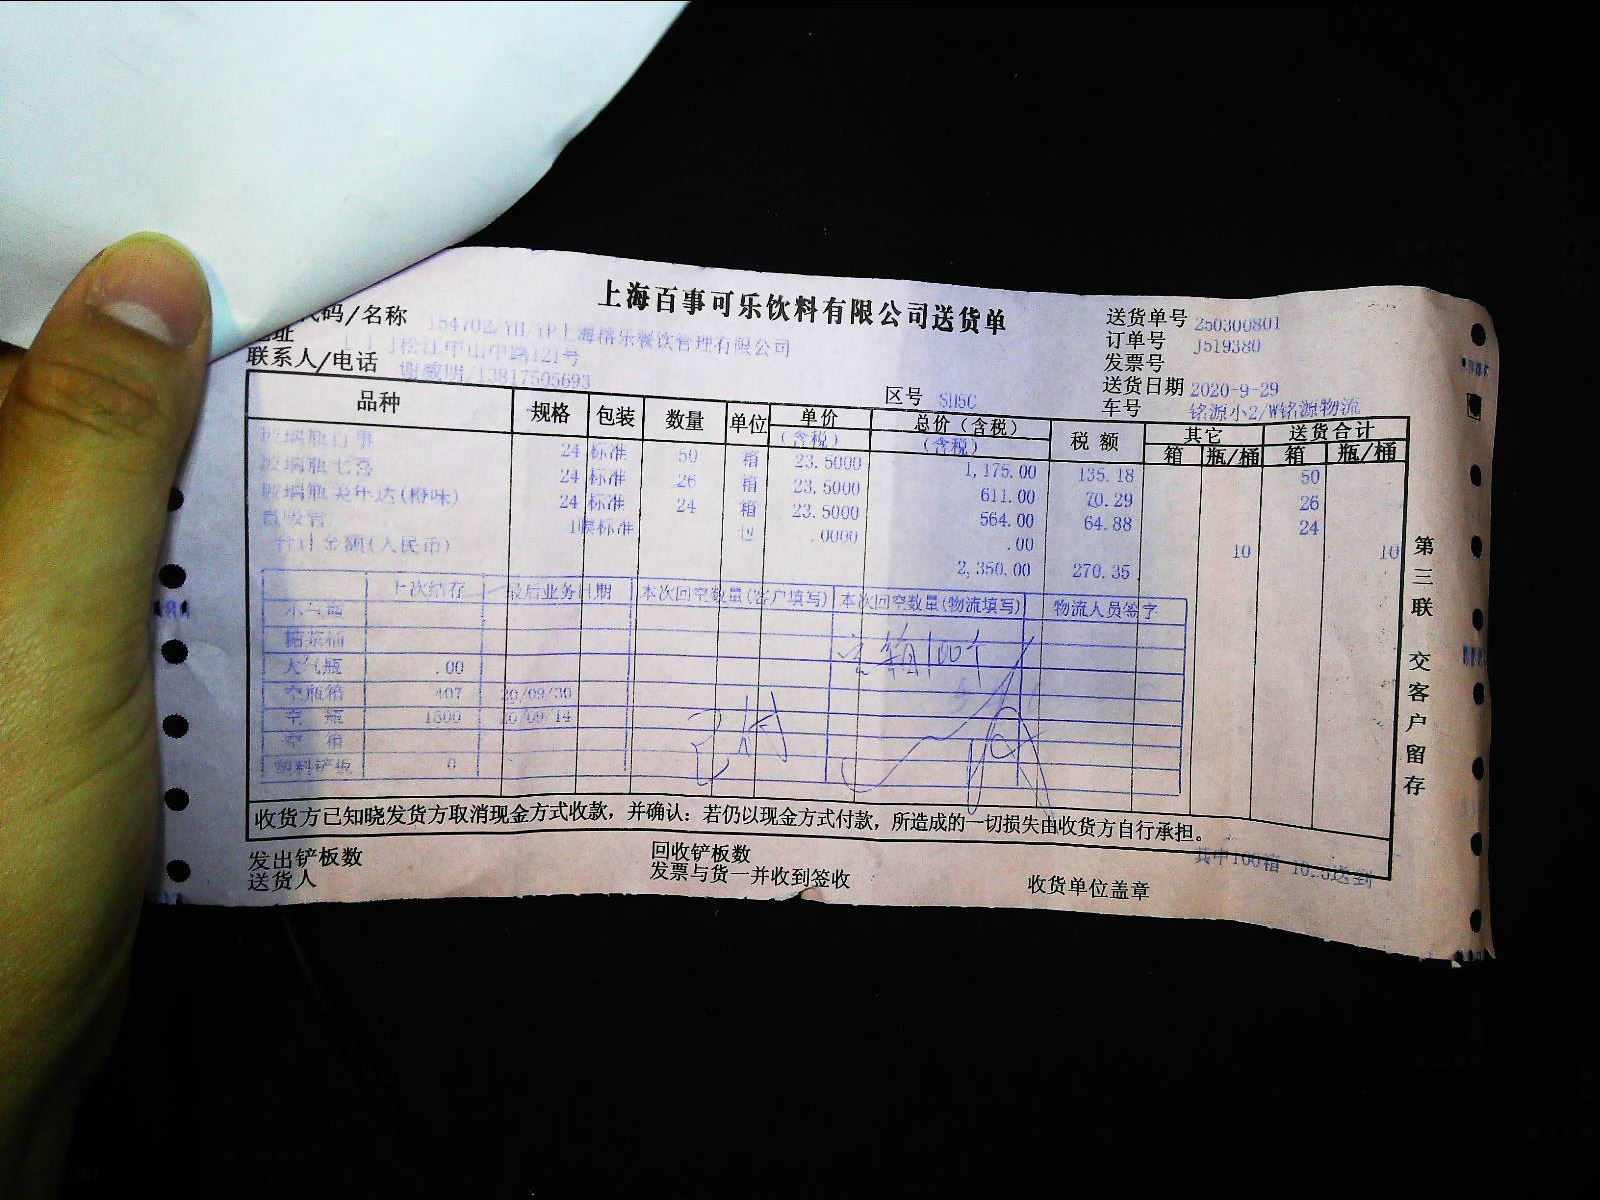 上海百事可乐饮料有限公司送货单
代码/名称 154702/YH/YP上海楷乐餐饮管理有限公司
地址 松江中山中路121号
联系人/电话 谢威明/13817505693
区号 SH5C
送货单号 250300801
订单号 J519380
发票号
送货日期 2020-9-29
车号 铭源小2/W铭源物流
品种 规格 包装 数量 单位 单价(含税) 总价(含税) 税额 其它 送货合计
箱 瓶/桶 箱 瓶/桶
玻璃瓶百事 24 标准 50 箱 23.5000 1,175.00 135.18 50
玻璃瓶七喜 24 标准 26 箱 23.5000 611.00 70.29 26
玻璃瓶美年达(橙味) 24 标准 24 箱 23.5000 564.00 64.88 24
吸管 标准 包 .0000 .00 10 10
合计金额(人民币) 2,350.00 270.35
上次结存 最后业务日期 本次回空数量(客户填写) 本次回空数量(物流填写) 物流人员签字
空箱100个
大气瓶 .00
空瓶箱 407 20/09/30
空 瓶 1800 20/09/14
空 箱
塑料铲板 0
收货方已知晓发货方取消现金方式收款，并确认：若仍以现金方式付款，所造成的一切损失由收货方自行承担。
其中100箱 10.5送到
发出铲板数 回收铲板数
送货人 发票与货一并收到签收 收货单位盖章
第三联 交客户留存